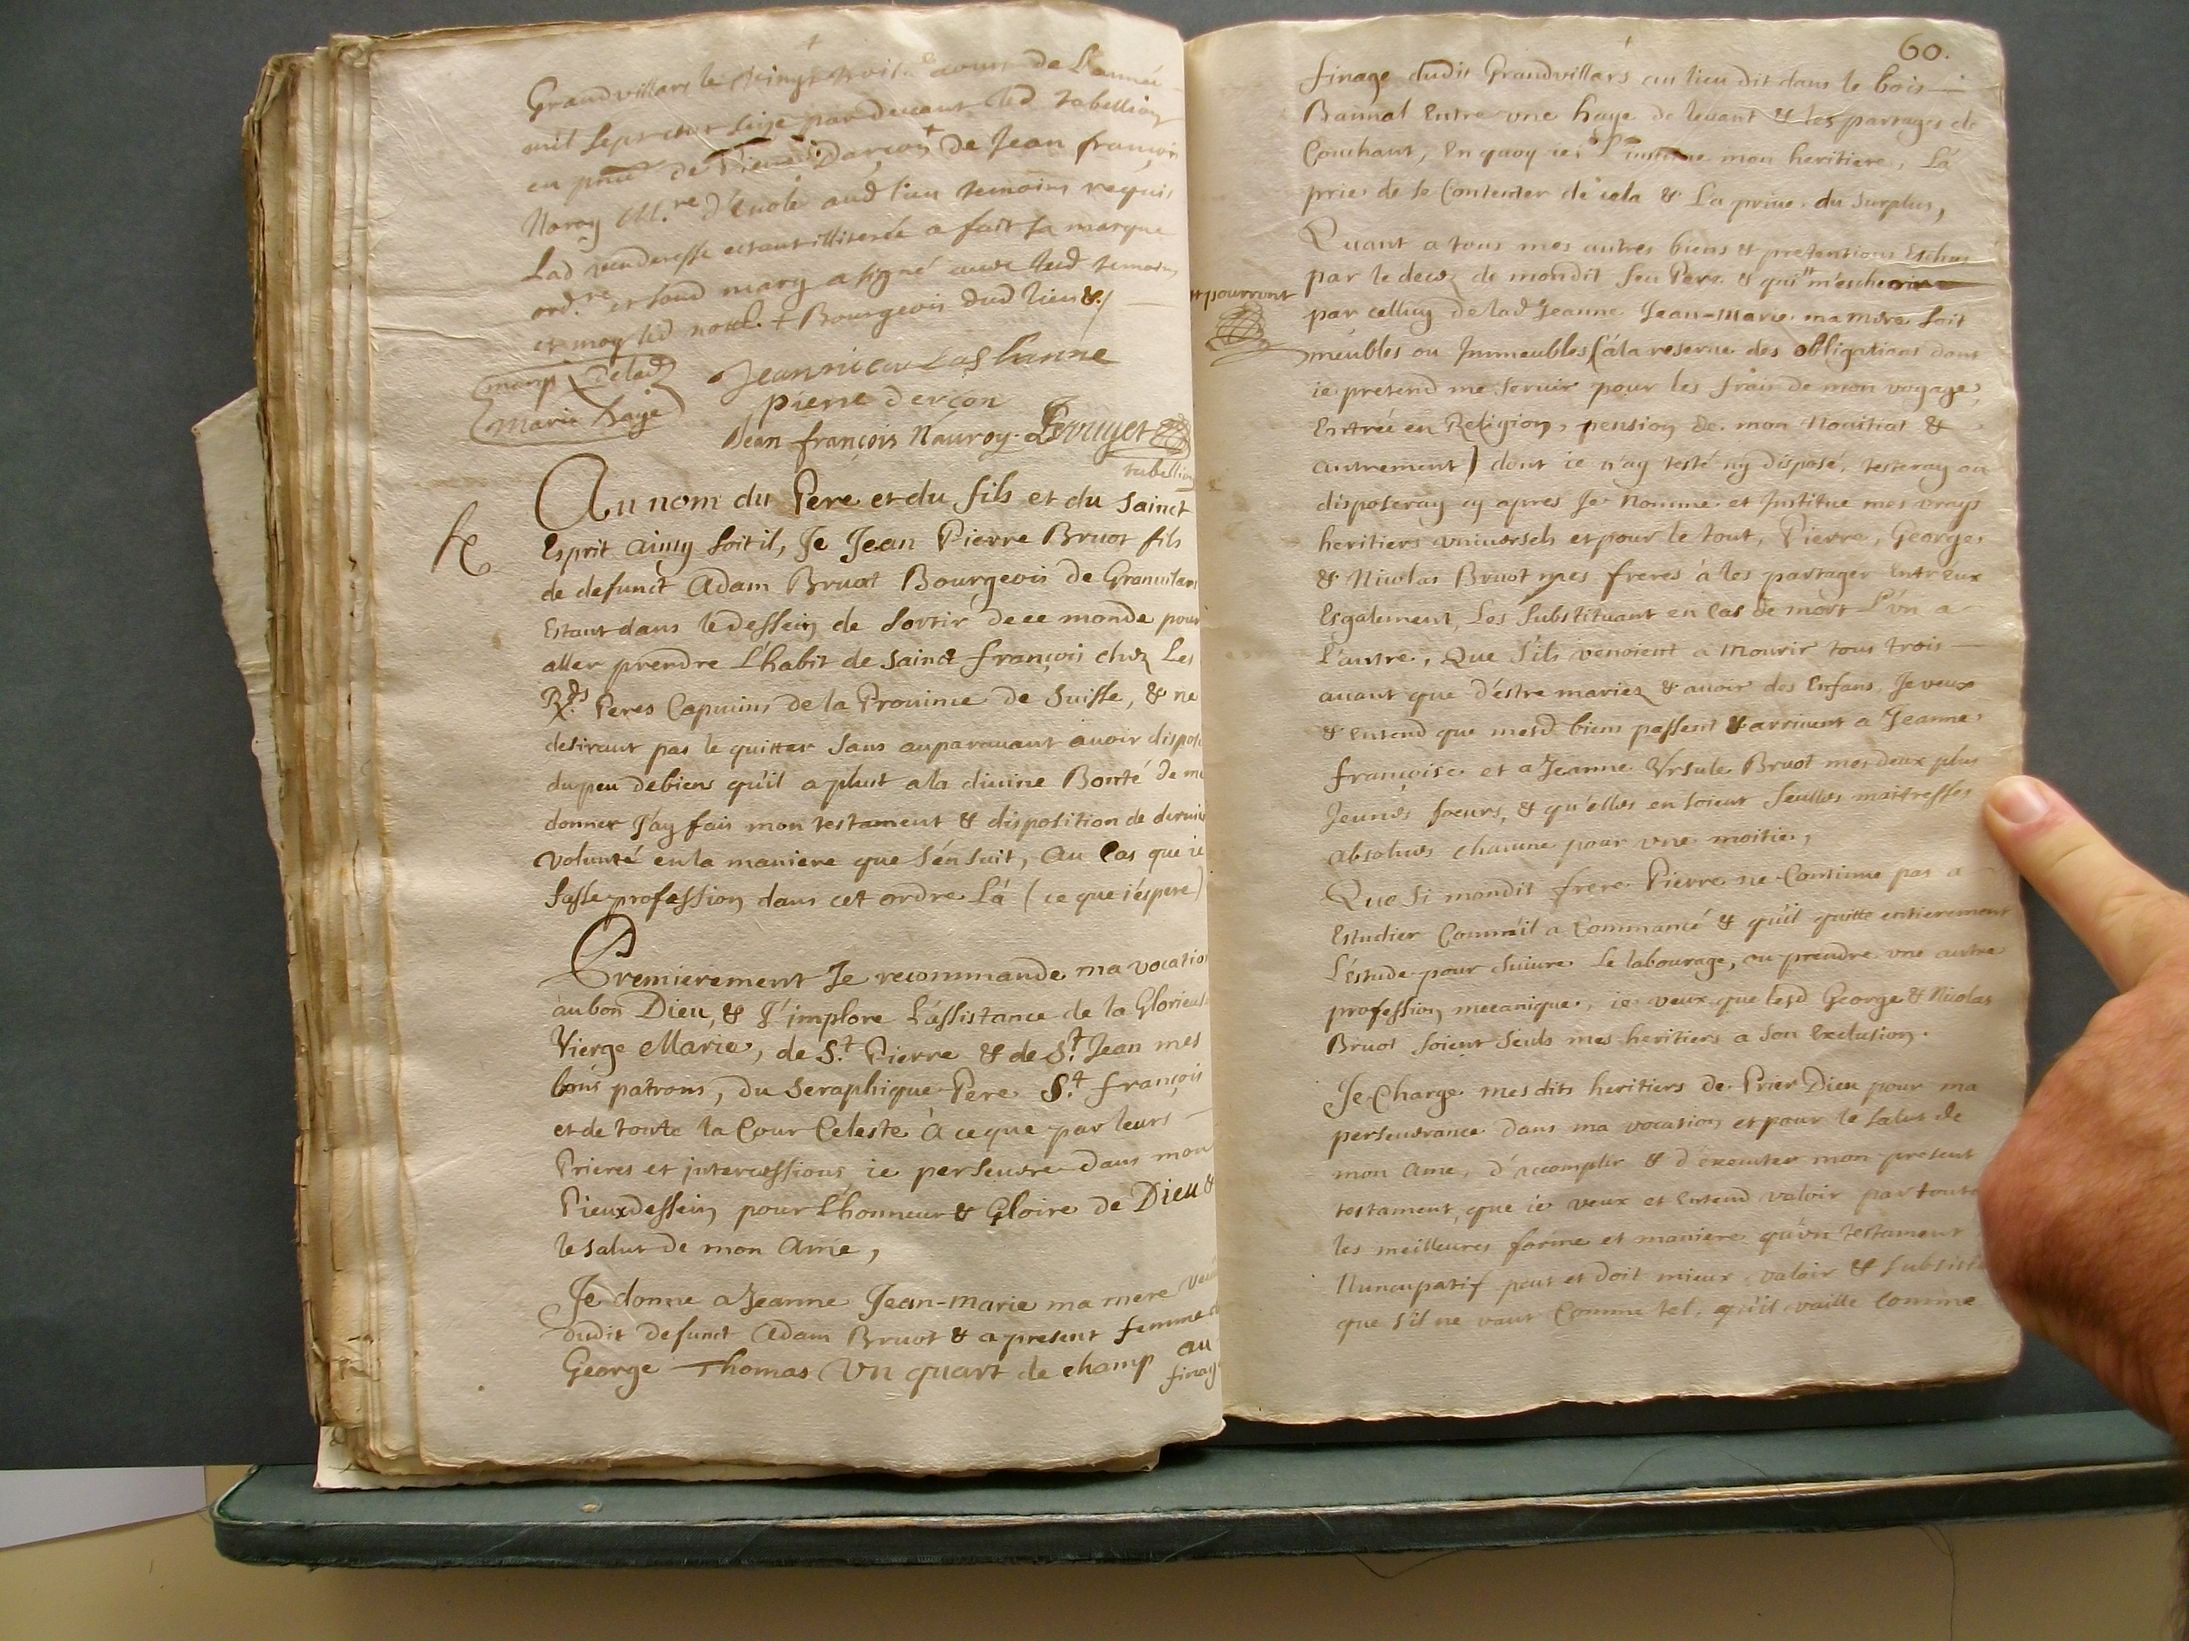 Grandvillars le vingt trois.e aoust de L'année
mil sept cent seize par devant led tabellion
en pnce de Pierre Darçon + de Jean françois
Naroy Ml.re d'école aud lieu temoins requis
Lad venderesse estant illiterée a fait sa marque
ord.re et sond mary a signé avec lesd temoins
et moy led notl. + Bourgeois dud lieu &./
marq delad
marie haye
Jean nicou
pierre derçon
Jean françois Nauroy.
tabellion
Au nom du Pere et du fils et du Sainct
Esprit ainsy soit il, Je Jean Pierre Bruot fils
de defunct Adam Bruat Bourgeois de Granvilars
Estant dans le dessein de sortir de ce monde pour
aller prendre L'habit de Sainct françois chez Les
R.ds Peres Capucins de la Province de Suisse, & ne
desirant pas le quitter sans auparavant avoir disposé
du peu de biens qu'il a plust a la divine Bonté de me
donner J'ay fais mon testament & disposition de derniere
volunté en la maniere que s'en suit, Au Cas que ie
fasse profession dans cet ordre Là (ce que i'espere)
Premierement Je recommande ma vocation
au bon Dieu, & J'implore L'assistance de la Glorieuse
Vierge Marie, de S.t Pierre & de S.t Jean mes
bons patrons, du Seraphique Pere S.t françois
et de toute la Cour Celeste À ce que par leurs
Prieres et intercessions ie persevere dans mon
Pieux dessein pour L'honneur & Gloire de Dieu &
le salut de mon Ame,
Je donne a Jeanne Jean-marie ma mere veuve
dudit defunct Adam Bruot & a present femme de
George Thomas Un quart de champ au
finage
60.
finage dudit Grandvillars au lieu dit dans le bois
Bannal Entre une haye de levant & les partages de
Couchant, En quoy ie L'institue mon heritiere, La
prie de se Contenter de cela & La prive du Surplus,
Quant a tous mes autres biens et pretentions Eschus
par le decez de mondit feu Pere & qui m'escheoir
et pourront
par celluy de lad Jeanne Jean-Marie ma mere soit
meubles ou Immeubles (à la reserve des obligations dont
ie pretend me servir pour les frais de mon voyage,
Entrée en Religion, pension de mon Novitiat &
autrement) dont ie n'ay testé ny disposé, testeray ou
disposeray cy apres Je Nomme et Institue mes vrays
heritiers universels et pour le tout, Pierre, George,
& Nicolas Bruot mes freres à les partager Entr'eux
Esgalement, Les Substituant en Cas de mort L'un a
L'autre, Que S'ils venoient a Mourir tous trois
avant que d'éstre mariez & avoir des Enfans, Je veux
& Entend que mesd biens passent & arrivent a Jeanne
françoise et a Jeanne Ursule Bruot mes deux plus
Jeunes soeurs, & qu'elles en soient Seulles maistresses
absolues chacune pour une moitie,
Que Si mondit frere Pierre ne Continue pas a
Estudier Comm'il a Commancé & qu'il quitte entierement
L'Estude pour suivre Le labourage, ou prendre une autre
profession mecanique, ie veux que lesd George & Nicolas
Bruot soient Seuls mes heritiers a Son Exclusion.
Je Charge mesdits heritiers de Prier Dieu pour ma
perseverance dans ma vocation et pour le salut de
mon Ame, d'accomplir & d'executer mon present
testament, que ie veux et Entend valoir par toute
les meilleures forme et maniere qu'un testament
Nuncupatif peut et doit mieux valoir & subsister
que s'il ne vaut Comme tel, qu'il vaille Comme